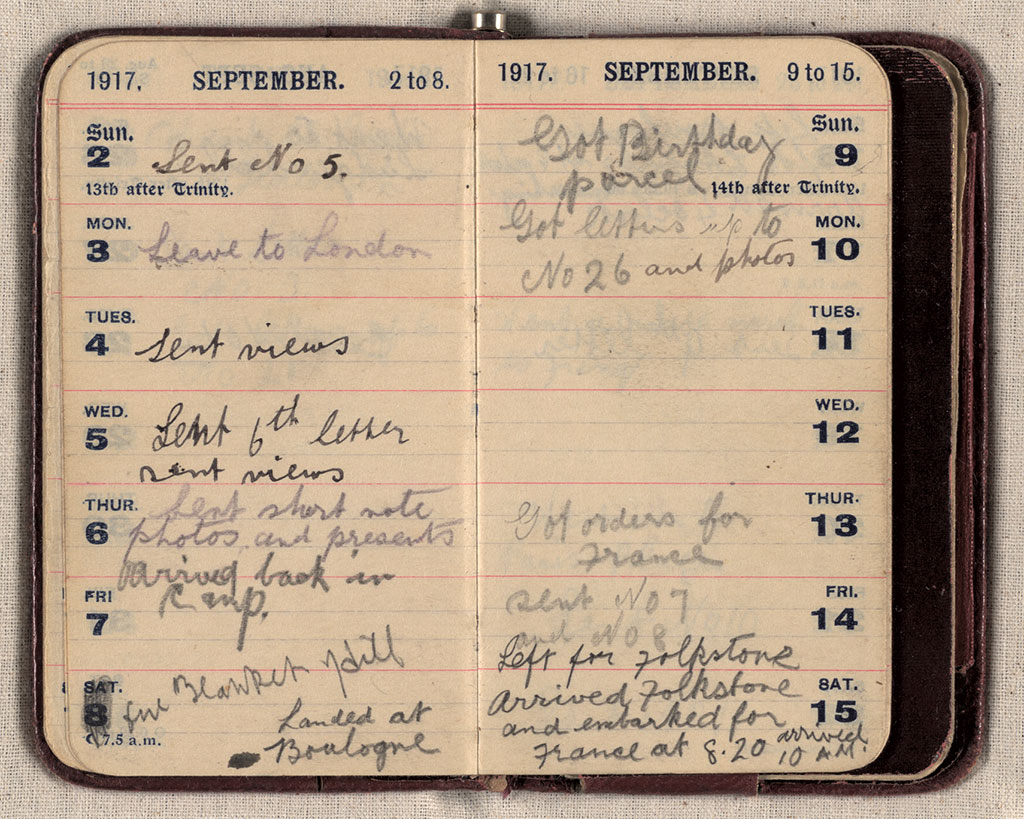 1917. SEPTEMBER. 2 to 8.
Sun.
2 Sent No 5.
13th after Trinity.
MON.
3 Leave to London
TUES.
4 Sent views
WED.
5 Sent 6th letter
sent views
THUR. Sent short note
6 photos and presents
Arrived back in
FRI Camp.
7
Blanket Hill
SAT.
8 Landed at
7.5 a.m. Boulogne
1917. SEPTEMBER. 9 to 15.
Got Birthday Sun.
parcel 9
14th after Trinity.
Got letters up to MON.
No 26 and photos 10
TUES.
11
WED.
12
THUR.
Got orders for 13
France
sent No 7 FRI.
and No 8 14
Left for Folkstone
Arrived Folkstone SAT.
and embarked for 15
France at 8.20 arrived
10 A.M.